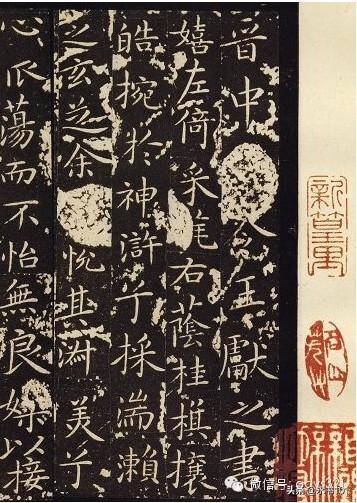 晋中王獻之書
嬉左倚采旄右蔭桂旗攘
皓捥於神滸兮採湍瀨
之玄芝余悅其淑美兮
心蕩而不怡無良媒以接
微信号:
头条